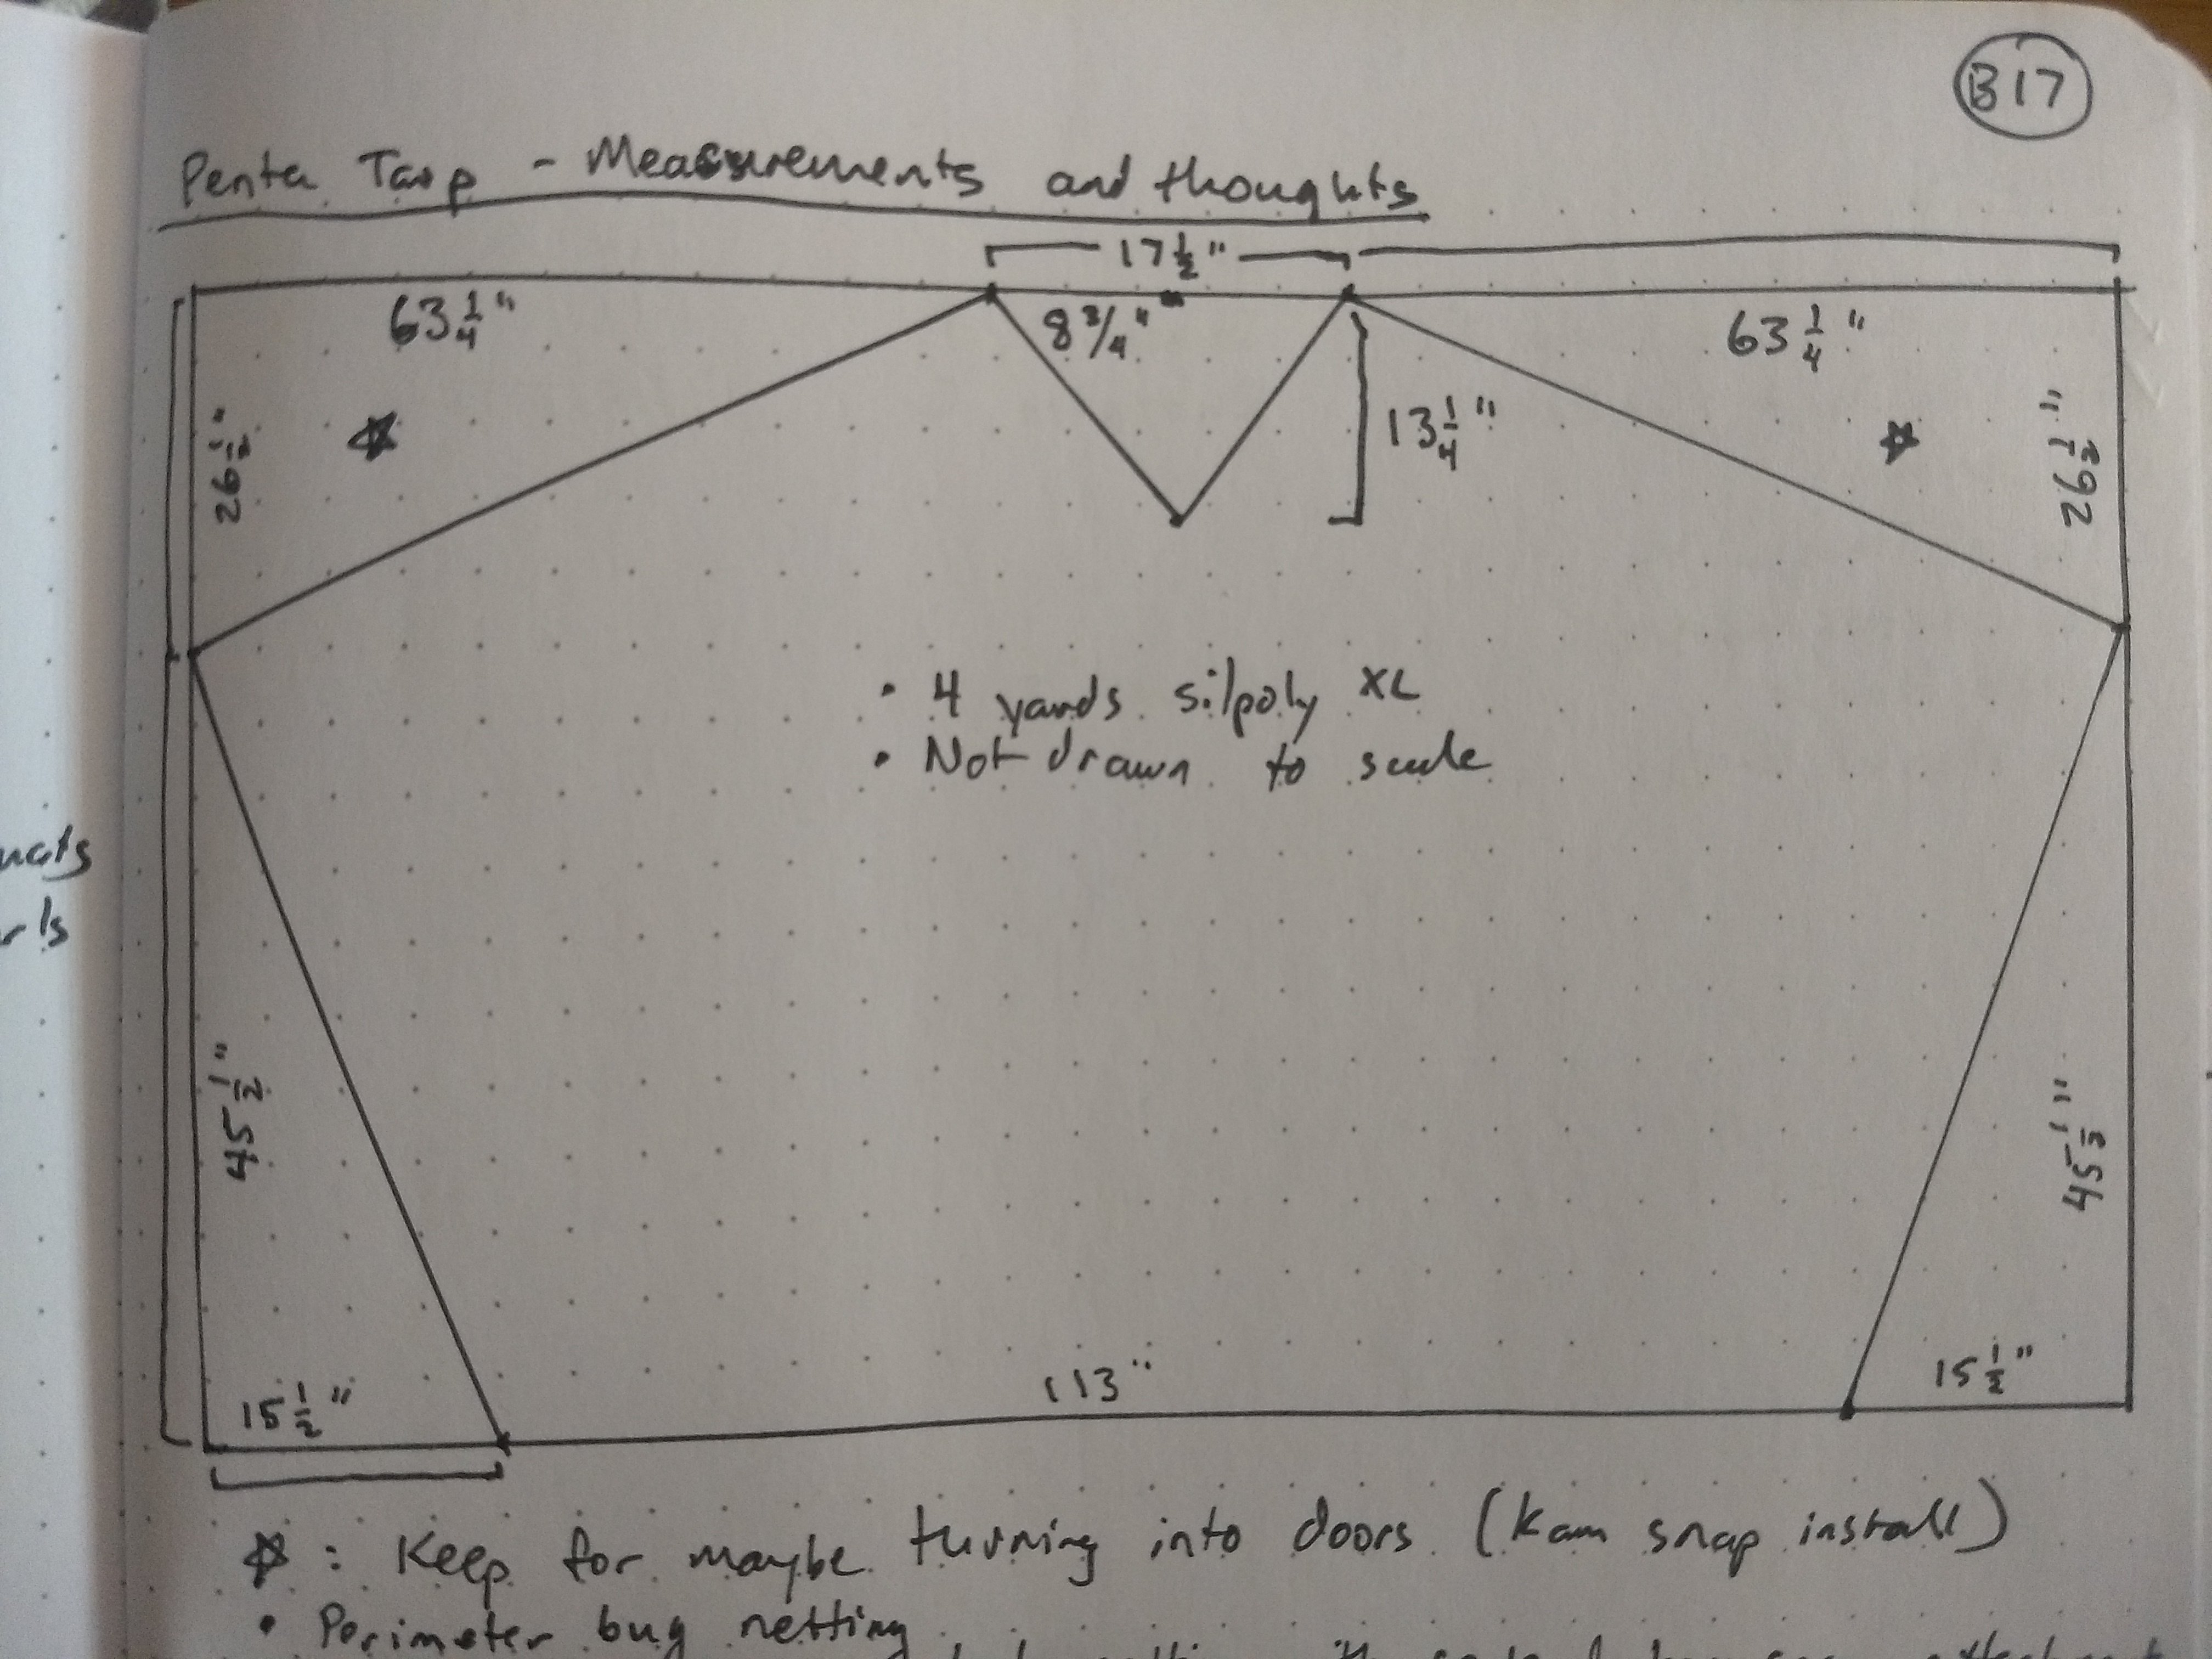 B17
Penta Tarp - Measurements and thoughts
17 1/2"
63 1/4"
8 3/4"
63 1/4"
13 1/4"
26 1/2"
26 1/2"
• 4 yards silpoly XL
• Not drawn to scale
nats
rls
45 1/2"
45 1/2"
15 1/2"
113"
15 1/2"
☆: Keep for maybe turning into doors (Kam snap install)
• Perimeter bug netting